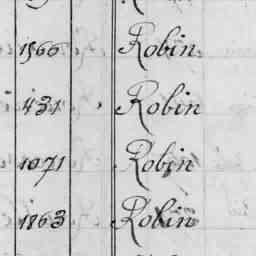 1566 Robin
431 Robin
1071 Robin
1863 Robin